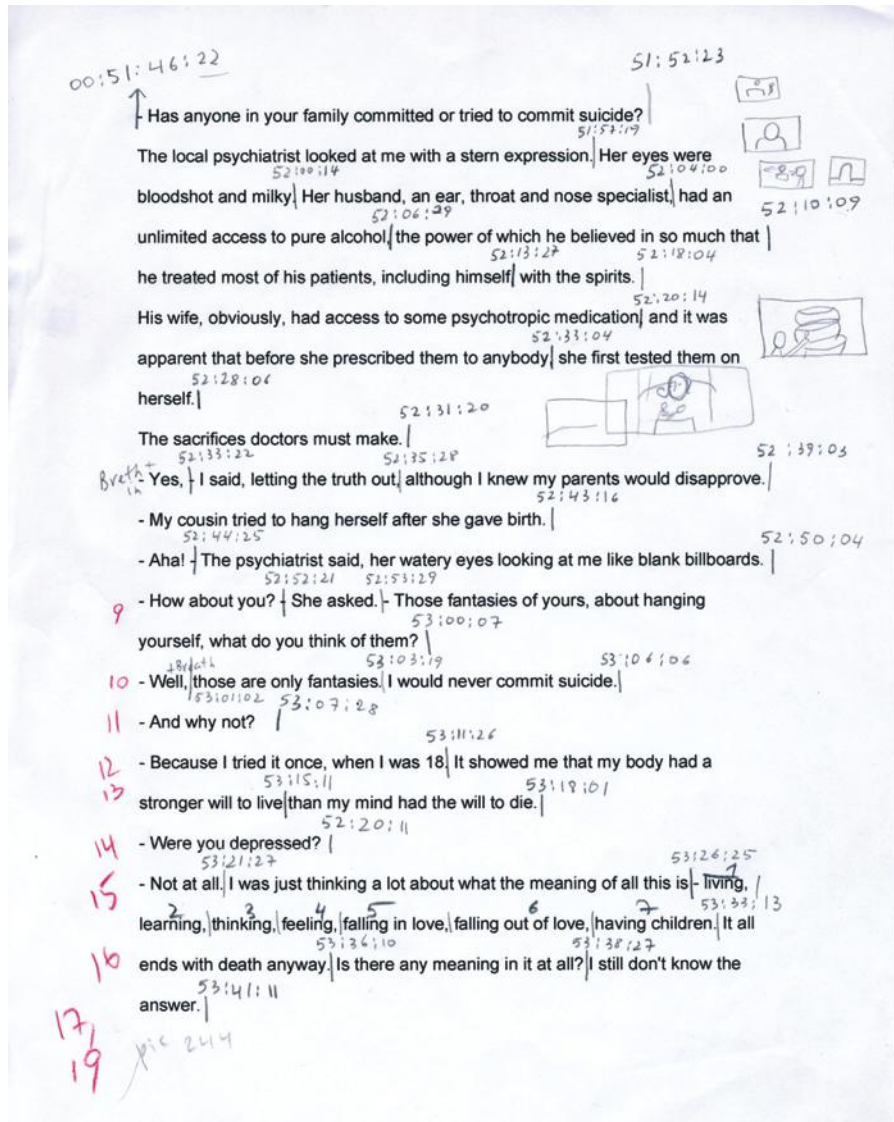 00:51:46:22
51:52:23
- Has anyone in your family committed or tried to commit suicide?
51:57:19
The local psychiatrist looked at me with a stern expression. Her eyes were
52:00:14 52:04:00
bloodshot and milky. Her husband, an ear, throat and nose specialist, had an
52:06:29 52:10:09
unlimited access to pure alcohol, the power of which he believed in so much that
52:13:27 52:18:04
he treated most of his patients, including himself with the spirits.
52:20:14
His wife, obviously, had access to some psychotropic medication, and it was
52:33:04
apparent that before she prescribed them to anybody, she first tested them on
52:28:06
herself.
52:31:20
The sacrifices doctors must make.
52:33:22 52:35:28 52:39:03
Breth in - Yes, - I said, letting the truth out, although I knew my parents would disapprove.
52:43:16
- My cousin tried to hang herself after she gave birth.
52:44:25 52:50:04
- Aha! - The psychiatrist said, her watery eyes looking at me like blank billboards.
52:52:21 52:53:29
9 - How about you? - She asked. - Those fantasies of yours, about hanging
53:00:07
yourself, what do you think of them?
+Breath 53:03:19 53:06:06
10 - Well, those are only fantasies. I would never commit suicide.
53:01:02 53:07:28
11 - And why not?
53:11:26
12 - Because I tried it once, when I was 18. It showed me that my body had a
13 53:15:11 53:18:01
stronger will to live than my mind had the will to die.
52:20:11
14 - Were you depressed?
53:21:27 53:26:25
15 - Not at all. I was just thinking a lot about what the meaning of all this is - living,
1 53:33:13
2 3 4 5 6 7
learning, thinking, feeling, falling in love, falling out of love, having children. It all
53:36:10 53:38:27
16 ends with death anyway. Is there any meaning in it at all? I still don't know the
53:41:11
answer.
17,
19
pic 244